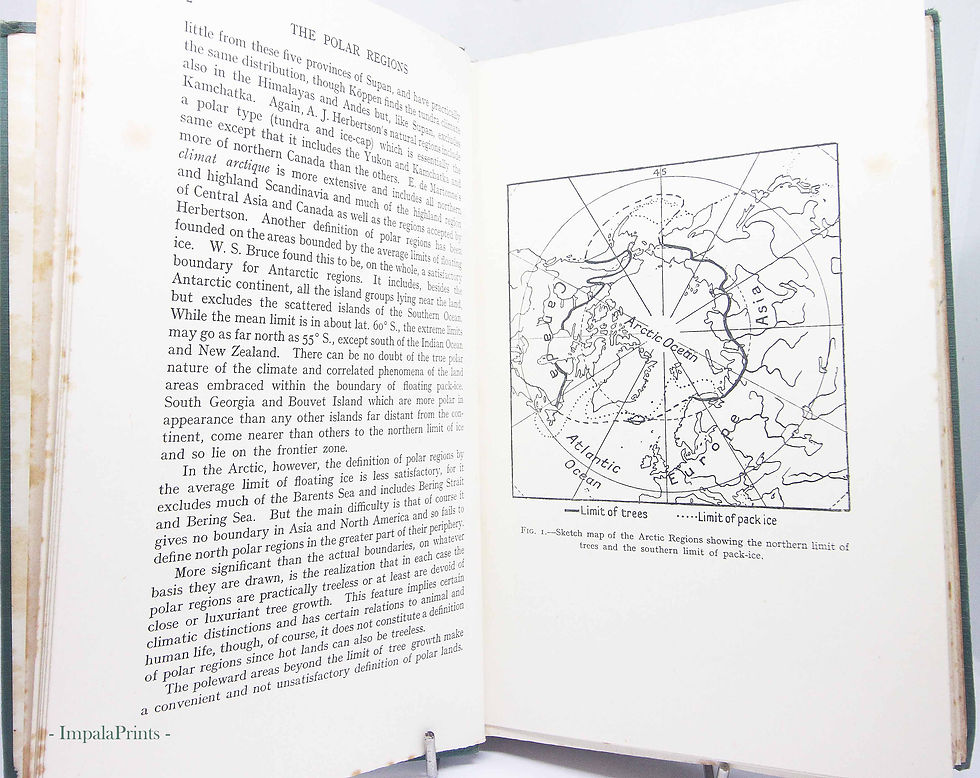 THE POLAR REGIONS
little from these five provinces of Supan, and have practically
the same distribution, though Köppen finds the tundra climate
also in the Himalayas and Andes but, like Supan, excludes
Kamchatka. Again, A. J. Herbertson's natural regions include
a polar type (tundra and ice-cap) which is essentially the
same except that it includes the Yukon and Kamchatka and
more of northern Canada than the others. E. de Martonne's
climat arctique is more extensive and includes all northern
and highland Scandinavia and much of the highland region
of Central Asia and Canada as well as the regions accepted by
Herbertson. Another definition of polar regions has been
founded on the areas bounded by the average limits of floating
ice. W. S. Bruce found this to be, on the whole, a satisfactory
boundary for Antarctic regions. It includes, besides the
Antarctic continent, all the island groups lying near the land,
but excludes the scattered islands of the Southern Ocean.
While the mean limit is in about lat. 60° S., the extreme limits
may go as far north as 55° S., except south of the Indian Ocean
and New Zealand. There can be no doubt of the true polar
nature of the climate and correlated phenomena of the land
areas embraced within the boundary of floating pack-ice.
South Georgia and Bouvet Island which are more polar in
appearance than any other islands far distant from the con-
tinent, come nearer than others to the northern limit of ice
and so lie on the frontier zone.
In the Arctic, however, the definition of polar regions by
the average limit of floating ice is less satisfactory, for it
excludes much of the Barents Sea and includes Bering Strait
and Bering Sea. But the main difficulty is that of course it
gives no boundary in Asia and North America and so fails to
define north polar regions in the greater part of their periphery.
More significant than the actual boundaries, on whatever
basis they are drawn, is the realization that in each case the
polar regions are practically treeless or at least are devoid of
close or luxuriant tree growth. This feature implies certain
climatic distinctions and has certain relations to animal and
human life, though, of course, it does not constitute a definition
of polar regions since hot lands can also be treeless.
The poleward areas beyond the limit of tree growth make
a convenient and not unsatisfactory definition of polar lands.
45
Arctic Ocean
Asia
Europe
Atlantic
Ocean
Limit of trees
Limit of pack ice
FIG. 1.—Sketch map of the Arctic Regions showing the northern limit of
trees and the southern limit of pack-ice.
- ImpalaPrints -